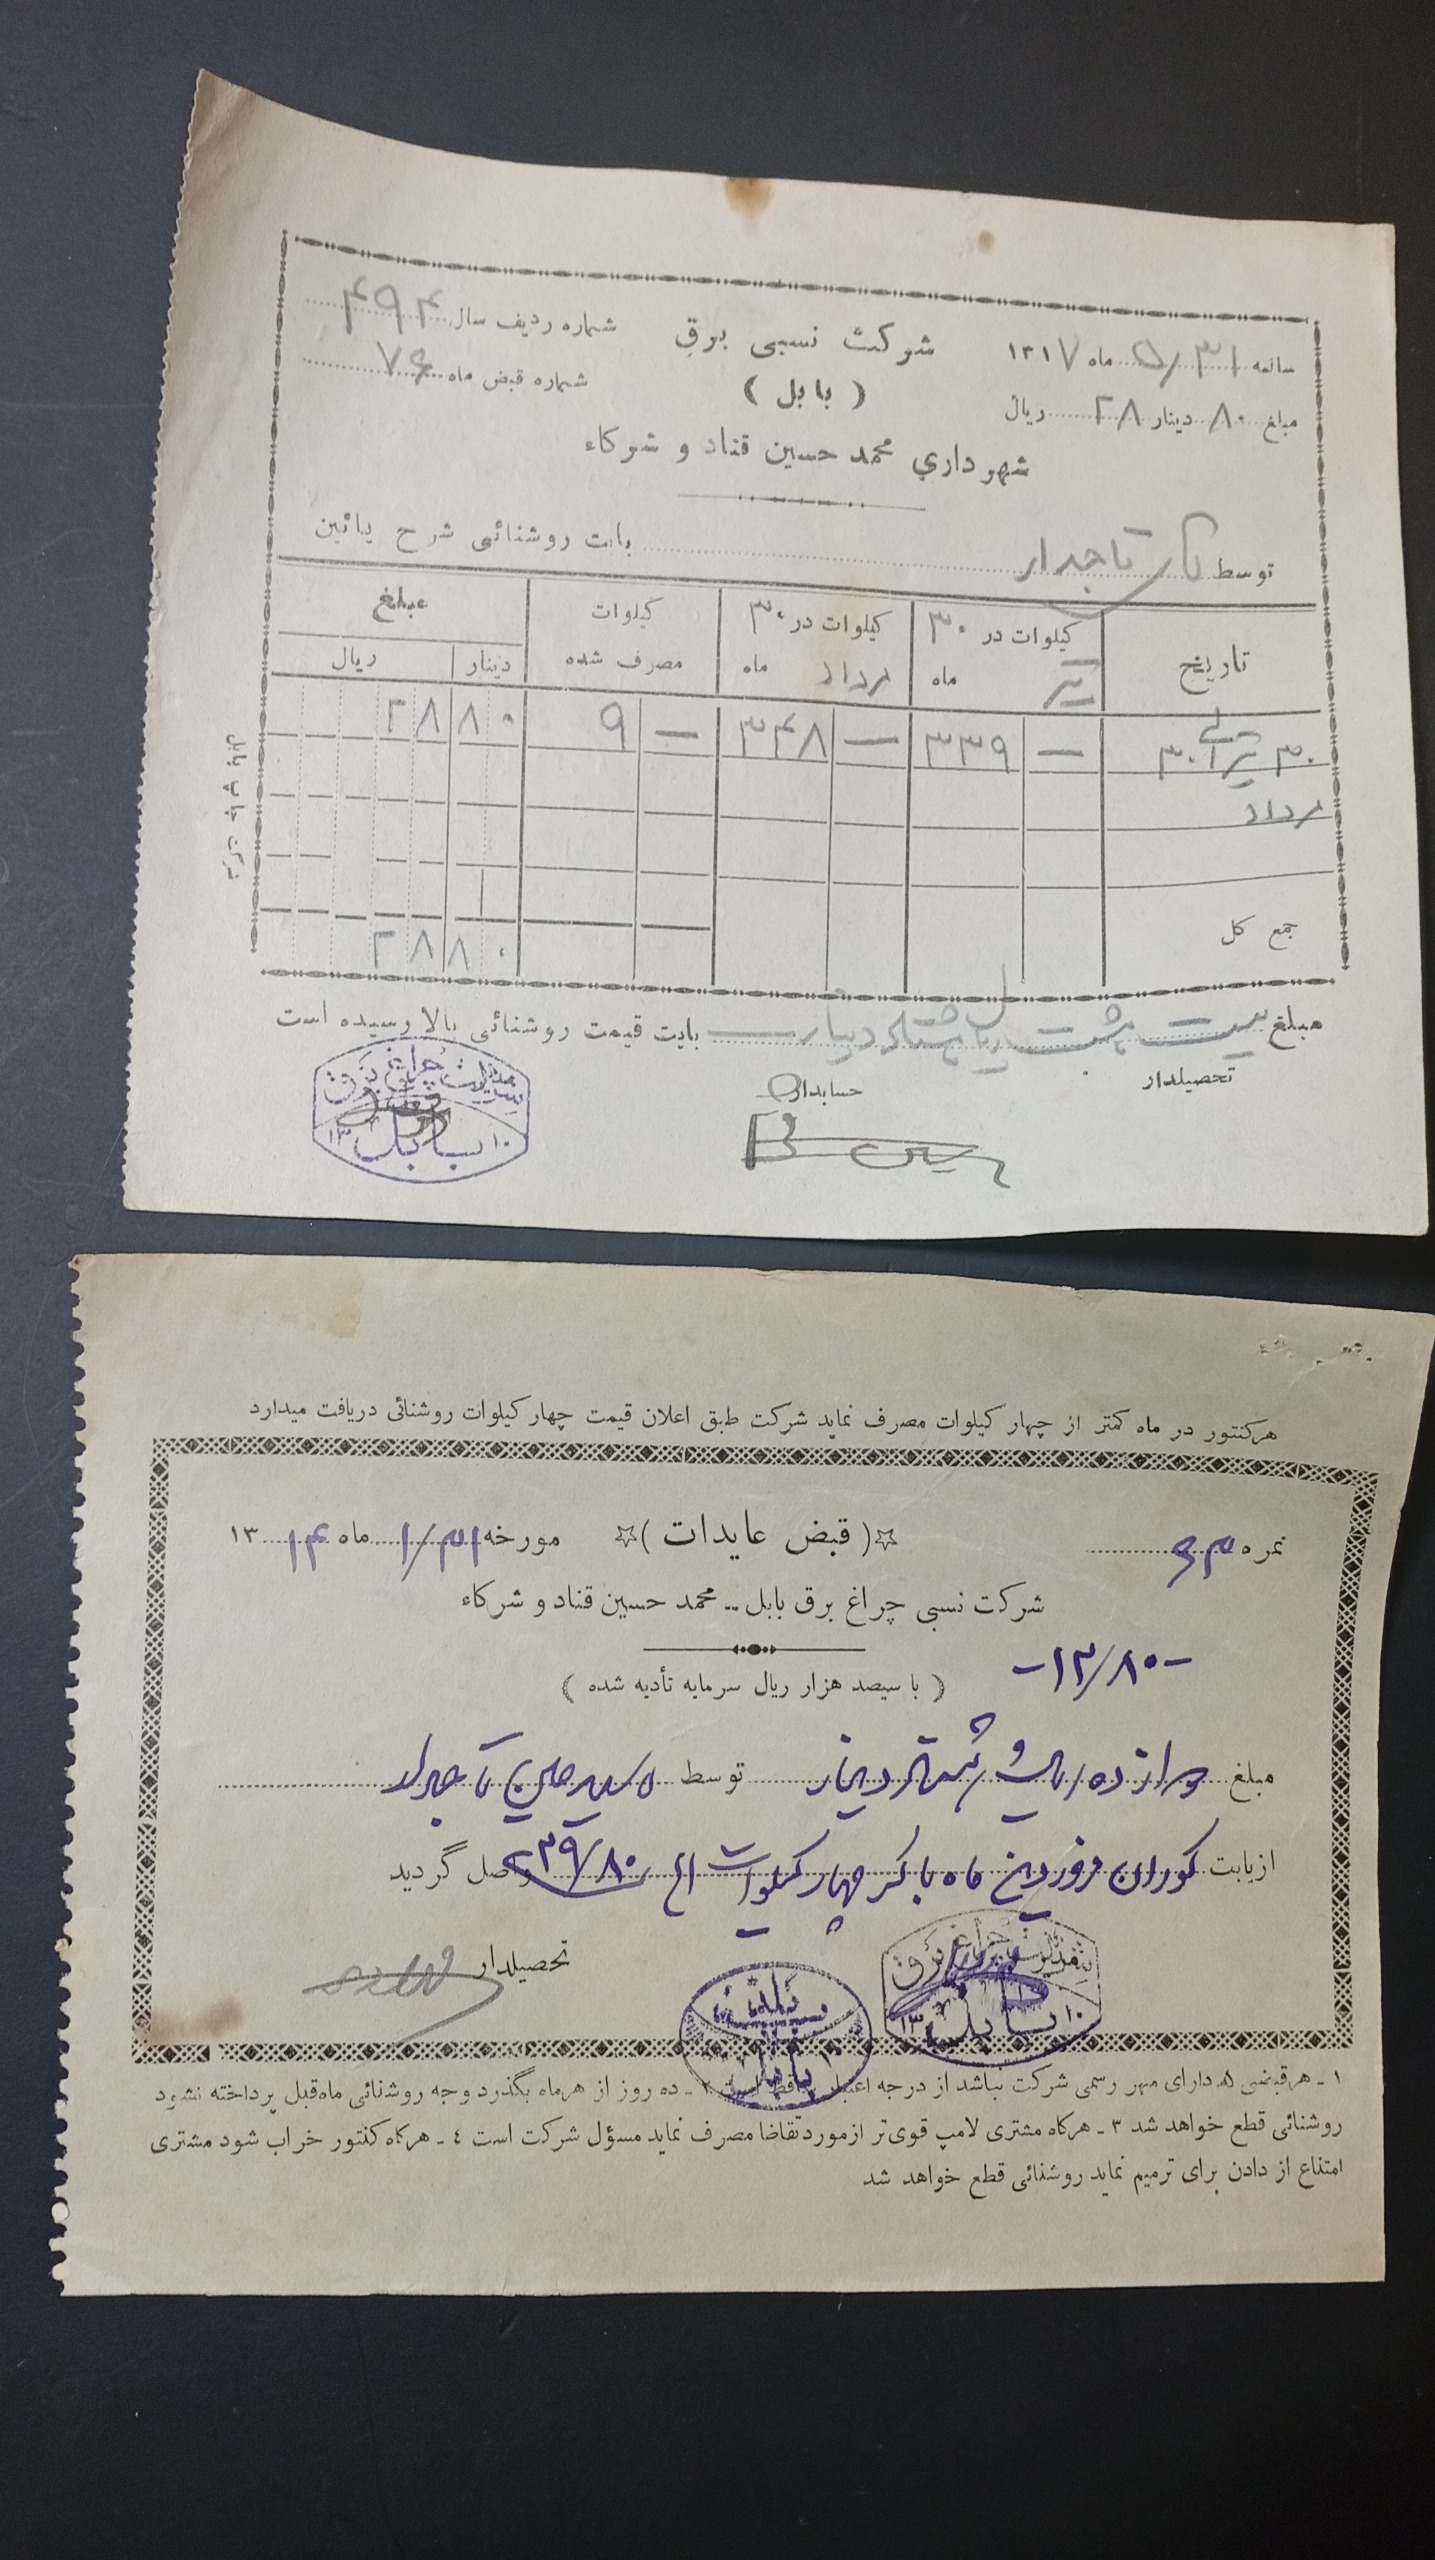 سالمه ۵/۳۱ ماه ۱۳۱۷
مبلغ ۸۰ دینار ۲۸ ریال
شرکت نسبی برق
( بابل )
شماره ردیف سال ۴۹۴
شماره قبض ماه ۷۶
شهرداري محمد حسین قناد و شرکاء
توسط تاجدار بابت روشنائی شرح پائین
تاریخ
کیلوات در ۳۰ تیر ماه
کیلوات در ۳۰ مرداد ماه
کیلوات مصرف شده
مبلغ
دینار ریال
۳۰ تیر الی ۳۰ — ۳۳۹ — ۳۴۸ — ۹ ۸۰ ۲۸
مرداد
جمع کل ۸۰ ۲۸
مبلغ بیست و هشت ریال و هشتاد دینار بابت قیمت روشنائی بالا رسیده است
تحصیلدار
حسابدار
مدیریت چراغ برق
بابل
۱۳ ۱۰
شرکت چاپ بابل
هرکنتور در ماه کمتر از چهار کیلوات مصرف نماید شرکت طبق اعلان قیمت چهار کیلوات روشنائی دریافت میدارد
نمره ۶۳
( قبض عایدات )
مورخه ۱/۳۱ ماه ۱۳۱۴
شرکت نسبی چراغ برق بابل .. محمد حسین قناد و شرکاء
-۱۲/۸۰-
( با سیصد هزار ریال سرمایه تأدیه شده )
مبلغ دوازده ریال و هشتاد دینار توسط حسین تاجدار
ازبابت کوران فروردین ماه با کسر چهار کیلوات ۳۹/۸۰ واصل گردید
تحصیلدار
مدیریت چراغ برق
بابل
۱۳ ۱۰
۱ ـ هرقبضی که دارای مهر رسمی شرکت نباشد از درجه اعتبار ساقط است ۲ ـ ده روز از هرماه بگذرد وجه روشنائی ماه‌قبل پرداخته نشود
روشنائی قطع خواهد شد ۳ ـ هرگاه مشتری لامپ قوی‌تر ازمورد تقاضا مصرف نماید مسؤل شرکت است ٤ ـ هرگاه کنتور خراب شود مشتری
امتناع از دادن برای ترمیم نماید روشنائی قطع خواهد شد